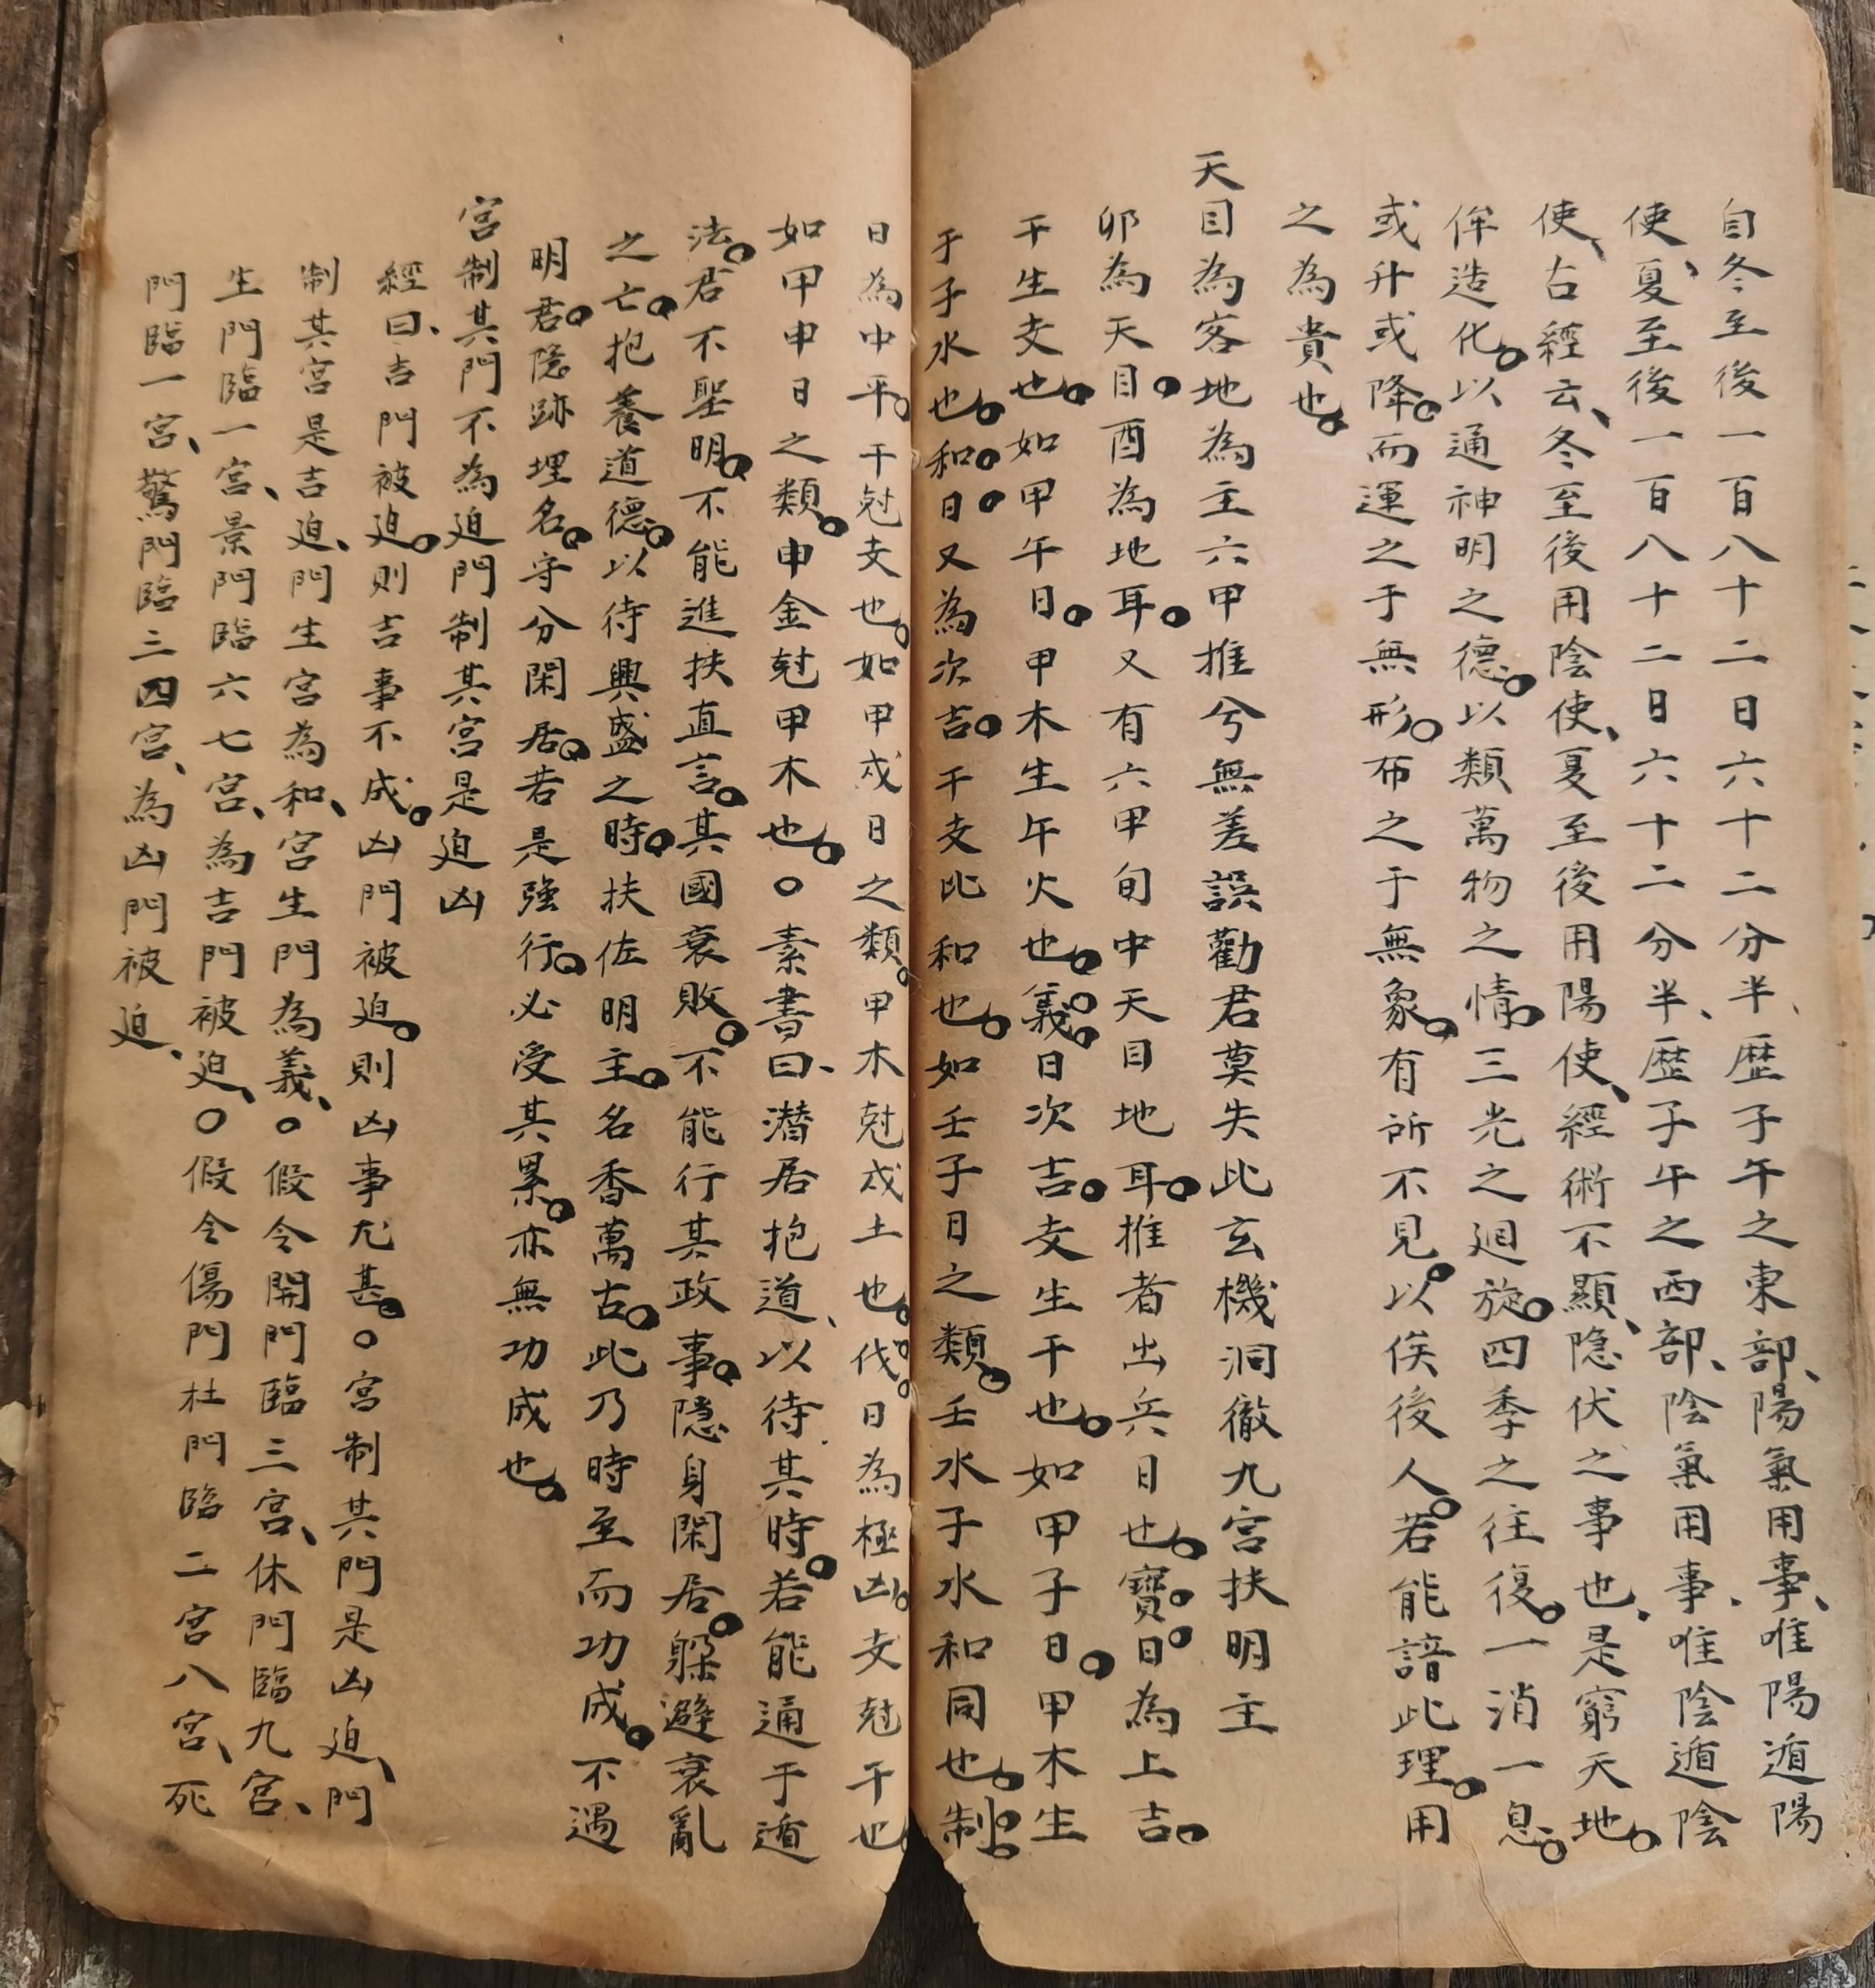 自冬至後一百八十二日六十二分半、歴子午之東部、陽氣用事、唯陽遁陽
使、夏至後一百八十二日六十二分半、歴子午之西部、陰氣用事、唯陰遁陰
使、古經云、冬至後用陰使、夏至後用陽使、經術不顯、隐伏之事也、是窮天地。
侔造化。以通神明之德。以類萬物之情。三光之廻旋。四季之往復。一消一息。
或升或降。而運之于無形。布之于無象。有所不見。以俟後人。若能諳此理。用
之為貴也。
天目為客地為主六甲推兮無差誤勸君莫失此玄機洞徹九宫扶明主
卯為天目。酉為地耳。又有六甲旬中天目地耳。推者出兵日也。寶日為上吉。
干生支也。如甲午日。甲木生午火也。義日次吉。支生干也。如甲子日。甲木生
于子水也。和日又為次吉。干支比和也。如壬子日之類。壬水子水和同也。制
日為中平。干尅支也。如甲戌日之類。甲木尅戌土也。伐日為極凶。支尅干也
如甲申日之類。申金尅甲木也。○素書曰、潜居抱道、以待其時。若能通于遁
法。君不聖明。不能進扶直言。其國衰敗。不能行其政事。隠身閑居。躲避衰亂
之亡。抱養道德。以待興盛之時。扶佐明主。名香萬古。此乃時至而功成。不遇
明君。隐跡埋名。守分閑居。若是強行。必受其累。亦無功成也。
宮制其門不為迫門制其宮是迫凶
經曰、吉門被迫。則吉事不成。凶門被迫。則凶事尤甚。○宮制其門是凶迫、門
制其宮是吉迫、門生宮為和、宮生門為義、○假令開門臨三宮、休門臨九宮、
生門臨一宮、景門臨六七宮、為吉門被迫、○假令傷門杜門臨二宮八宮、死
門臨一宮、驚門臨三四宮、為凶門被迫、